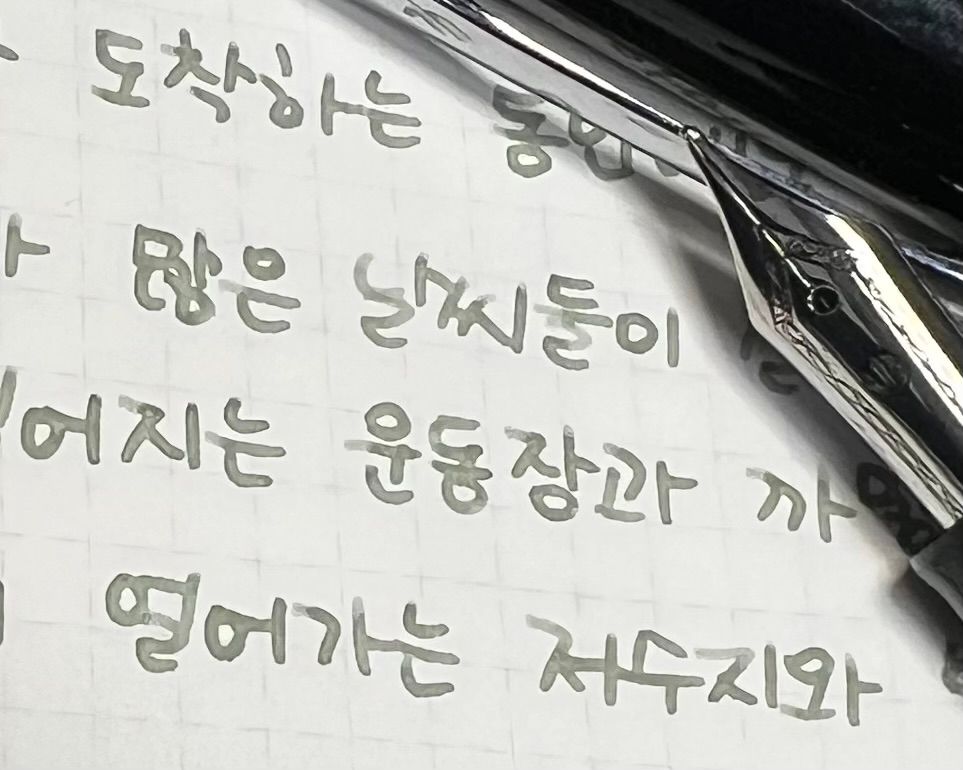 도착하는
많은 날씨들이
어지는 운동장과 까
열어가는 저수지와